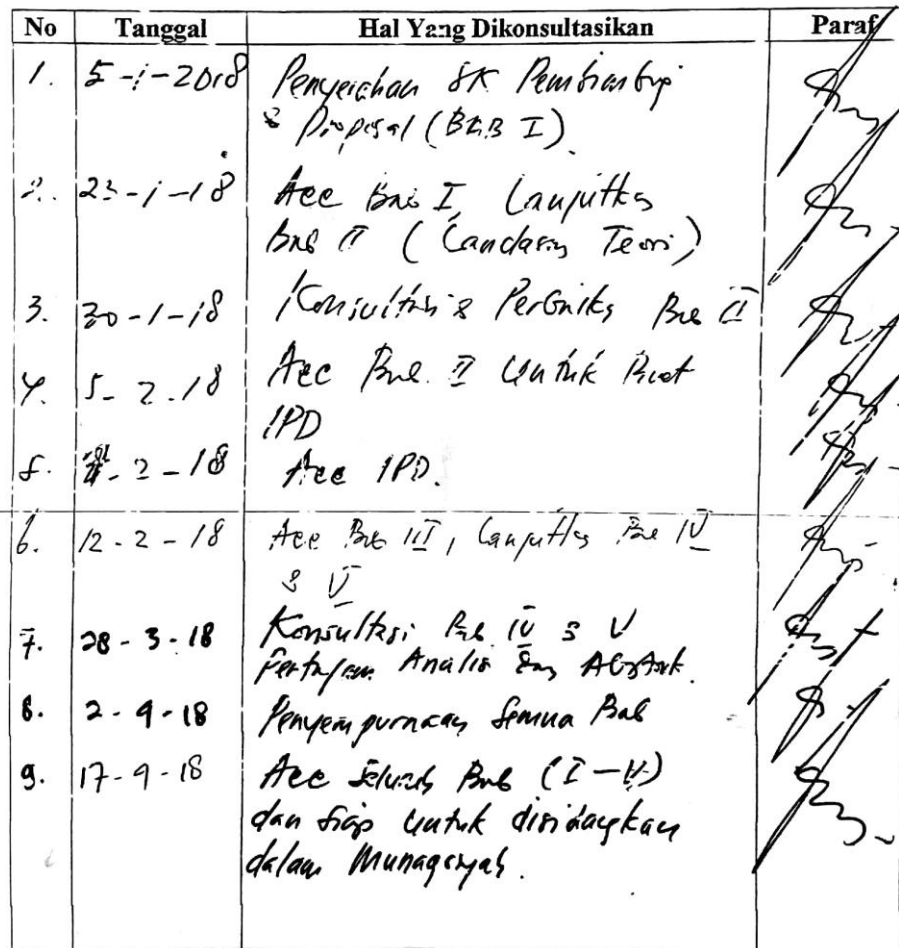 No Tanggal Hal Yang Dikonsultasikan Paraf
1. 5-1-2018 Penyerahan SK Pembimbing
& Proposal (BAB I).
2. 23-1-18 Acc Bab I, Lanjutkan
Bab II (Landasan Teori)
3. 30-1-18 Konsultasi & Perbaikan Bab II
4. 5-2-18 Acc Bab II untuk Buat
IPD
5. -2-18 Acc IPD.
6. 12-2-18 Acc Bab III, Lanjutkan Bab IV
& V
7. 28-3-18 Konsultasi Bab IV & V
Pertajam Analisis dan Abstrak.
8. 2-4-18 Penyempurnaan Semua Bab
9. 17-4-18 Acc Seluruh Bab (I-V)
dan siap untuk disidangkan
dalam Munaqasyah.